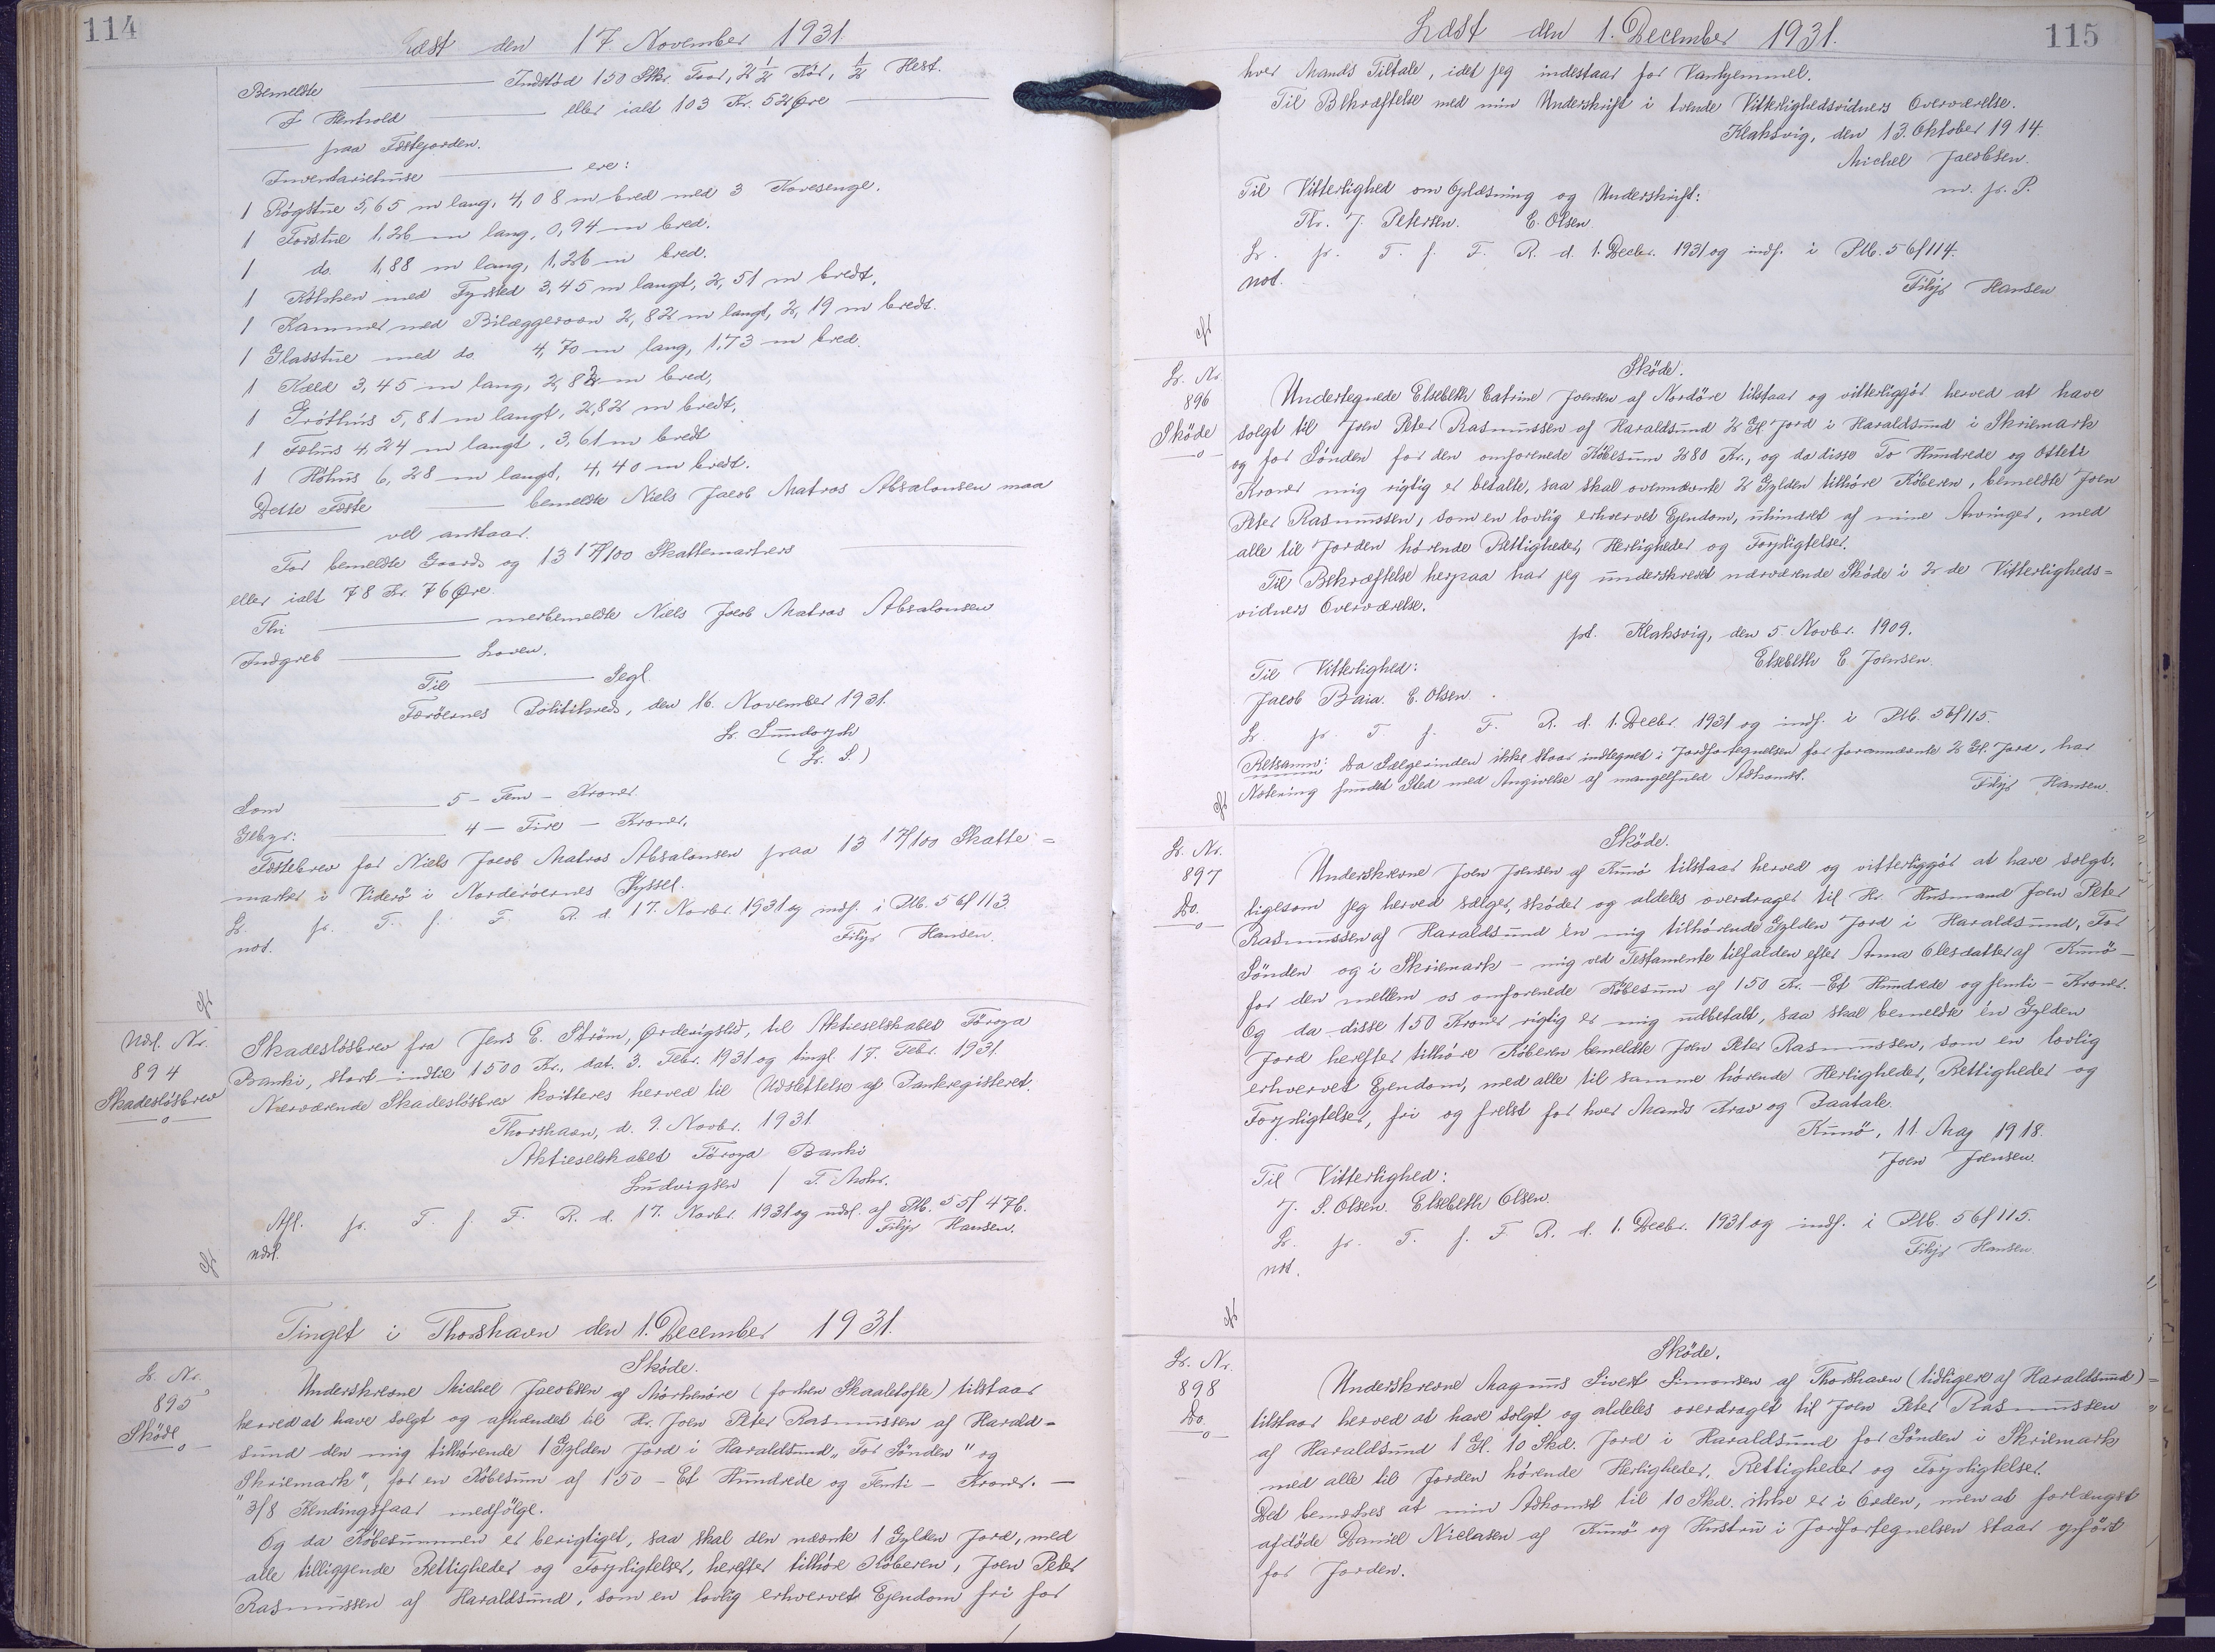 114
Læst den 17. November 1931.
Bemeldte ——— Indstød 150 Stkr. Faar, 2 1/2 Kör, 1/2 Hest.
I Henhold ——— eller ialt 103 Kr. 52 Øre ———
——— paa Fæstejorden.
Inventariehuse ——— ere:
1 Rögstue 5,65 m lang, 4,08 m bred med 3 Kovesenge.
1 Forstue 1,26 m lang, 0,94 m bred.
1 do. 1,88 m lang, 1,26 m bred.
1 Kökken med Fyrsted 3,45 m langt, 2,51 m bredt.
1 Kammer med Bilæggerovn 2,82 m langt, 2,19 m bredt.
1 Glasstue med do. 4,70 m lang, 1,73 m bred.
1 Kæld 3,45 m lang, 2,82 m bred,
1 Gróthús 5,81 m langt, 2,82 m bredt.
1 Fæhús 4,24 m langt, 3,61 m bredt
1 Höhús 6,28 m langt, 4,40 m bredt.
Dette Fæste ——— bemeldte Niels Jacob Matras Absalonsen maa
——— vel anstaar.
For bemeldte Gaards og 13 17/100 Skattemarkers
eller ialt 78 Kr. 76 Øre
Thi ——— merbemeldte Niels Jacob Matras Absalonsen
Indgreb ——— Loven.
Til ——— Segl.
Færöernes Politikreds, den 16. November 1931.
Lr.
( L. S. )
Som ——— 5 – Fem – Kroner.
Gebyr: ——— 4 – Fire – Kroner.
Fæstebrev for Niels Jacob Matras Absalonsen paa 13 17/100 Skatte=
marker i Viderö i Norderöernes Syssel.
L. pr. T. f. F. R. d. 17. Novbr. 1931 og indf. i Ptb. 56f 113.
not. Filip Hansen.
Udsl. Nr.
894
Skadeslösbrev
Skadeslösbrev fra Jens E. Ström, Ørderigslid, til Aktieselskabet Föroya
Banki, stort indtil 1500 Kr., dat. 3. Febr. 1931 og tingl. 17. Febr. 1931.
Nærværende Skadeslösbrev kvitteres herved til Udslettelse af Panteregisteret.
Thorshavn, d. 9. Novbr. 1931.
Aktieselskabet Föroya Banki
Ludvigsen / T. Mohr.
Afl. pr. T. f. F. R. d. 17. Novbr. 1931 og udsl. af Ptb. 55f 476.
udsl. Filip Hansen.
Tinget i Thorshavn den 1. December 1931.
L. Nr.
895
Sköde
Sköde.
Underskrevne Michel Jacobsen af Mórhenöre (forhen Skaaletofte) tilstaar
herved at have solgt og afhændet til Hr. Joen Peter Rasmussen af Harald=
sund den mig tilhørende 1 Gylden Jord i Haraldsund „For Sönden" og
„Skriemark", for en Köbesum af 150 – Et Hundrede og Femti – Kroner. —
3/8 Kendingsfaar medfölge.
Og da Köbesummen er berigtiget, saa skal den nævnte 1 Gylden Jord, med
alle tilliggende Rettigheder og Forpligtelser, herefter tilhöre Köberen, Joen Peter
Rasmussen af Haraldsund, som en lovlig erhvervet Ejendom fri for
Læst den 1. December 1931.
115
hver Mands Tiltale, idet jeg indestaar for Vanhjemmel.
Til Bekræftelse med min Underskrift i tvende Vitterlighedsvidners Overværelse.
Klaksvig, den 13. Oktober 1914.
Michel Jacobsen.
m. p. P.
Til Vitterlighed om Oplæsning og Underskrift:
Thr. J. Petersen. E. Olsen
L. pr. T. f. F. R. d. 1. Decbr. 1931 og indf. i Ptb. 56f 114.
not. Filip Hansen
L. Nr.
896
Sköde
Sköde.
Undertegnede Elsebeth Catrine Joensen af Nordöre tilstaar og vitterliggjör herved at have
solgt til Joen Peter Rasmussen af Haraldsund 2 Gl. Jord i Haraldsund i Skriemark
og for Sönden for den omforenede Köbesum 280 Kr., og da disse To Hundrede og Otteti
Kroner mig rigtig er betalte, saa skal ovennævnte 2 Gylden tilhöre Köberen, bemeldte Joen
Peter Rasmussen, som en lovlig erhvervet Ejendom, uhindret af mine Arvinger, med
alle til Jorden hörende Rettigheder, Herligheder og Forpligtelser.
Til Bekræftelse herpaa har jeg underskrevet nærværende Sköde i 2 de Vitterligheds=
vidners Overværelse.
pt. Klaksvig, den 5. Novbr. 1909.
Elsebeth C. Joensen.
Til Vitterlighed:
Jacob Baia. E. Olsen.
L. pr. T. f. F. R. d. 1. Decbr. 1931 og indf. i Ptb. 56f 115.
Retsanm: Da Sælgerinden ikke staar indtegnet i Jordfortegnelsen for forannævnte 2 Gl. Jord, har
Notering fundet Sted med Angivelse af mangelfuld Adkomst.
Filip Hansen.
L. Nr.
897
Do.
Sköde.
Underskrevne Joen Joensen af Kunö tilstaar herved og vitterliggör at have solgt,
ligesom jeg herved sælger, sköder og aldeles overdrager til Hr. Husmand Joen Peter
Rasmussen af Haraldsund én mig tilhörende Gylden Jord i Haraldsund, For
Sönden og i Skriemark – mig ved Testamente tilfalden efter Anna Olesdatter af Kunö –
for den mellem os omforenede Köbesum af 150 Kr. – Et Hundrede og femti – Kroner.
Og da disse 150 Kroner rigtig er mig udbetalt, saa skal bemeldte én Gylden
Jord herefter tilhöre Köberen bemeldte Joen Peter Rasmussen, som en lovlig
erhvervet Ejendom, med alle til samme hörende Herligheder, Rettigheder og
Forpligtelser, fri og frelst for hver Mands Krav og Paatale.
Kunö, 11. Maj 1918.
Joen Joensen.
Til Vitterlighed:
J. S. Olsen. Elsebeth Olsen.
L. pr. T. f. F. R. d. 1. Decbr. 1931 og indf. i Ptb. 56f 115.
not. Filip Hansen.
L. Nr.
898
Do.
Sköde.
Underskrevne Magnus Sivert Simonsen af Thorshavn (tidligere af Haraldsund)
tilstaar herved at have solgt og aldeles overdraget til Joen Peter Rasmussen
af Haraldsund 1 Gl. 10 Skd. Jord i Haraldsund for Sönden i Skriemark
med alle til Jorden hörende Herligheder, Rettigheder og Forpligtelser.
Det bemærkes at min Adkomst til 10 Skd. ikke er i Orden, men at forlængst
afdöde Daniel Niclasen af Kunö og Hustru i Jordfortegnelsen staar opfört
for Jorden.